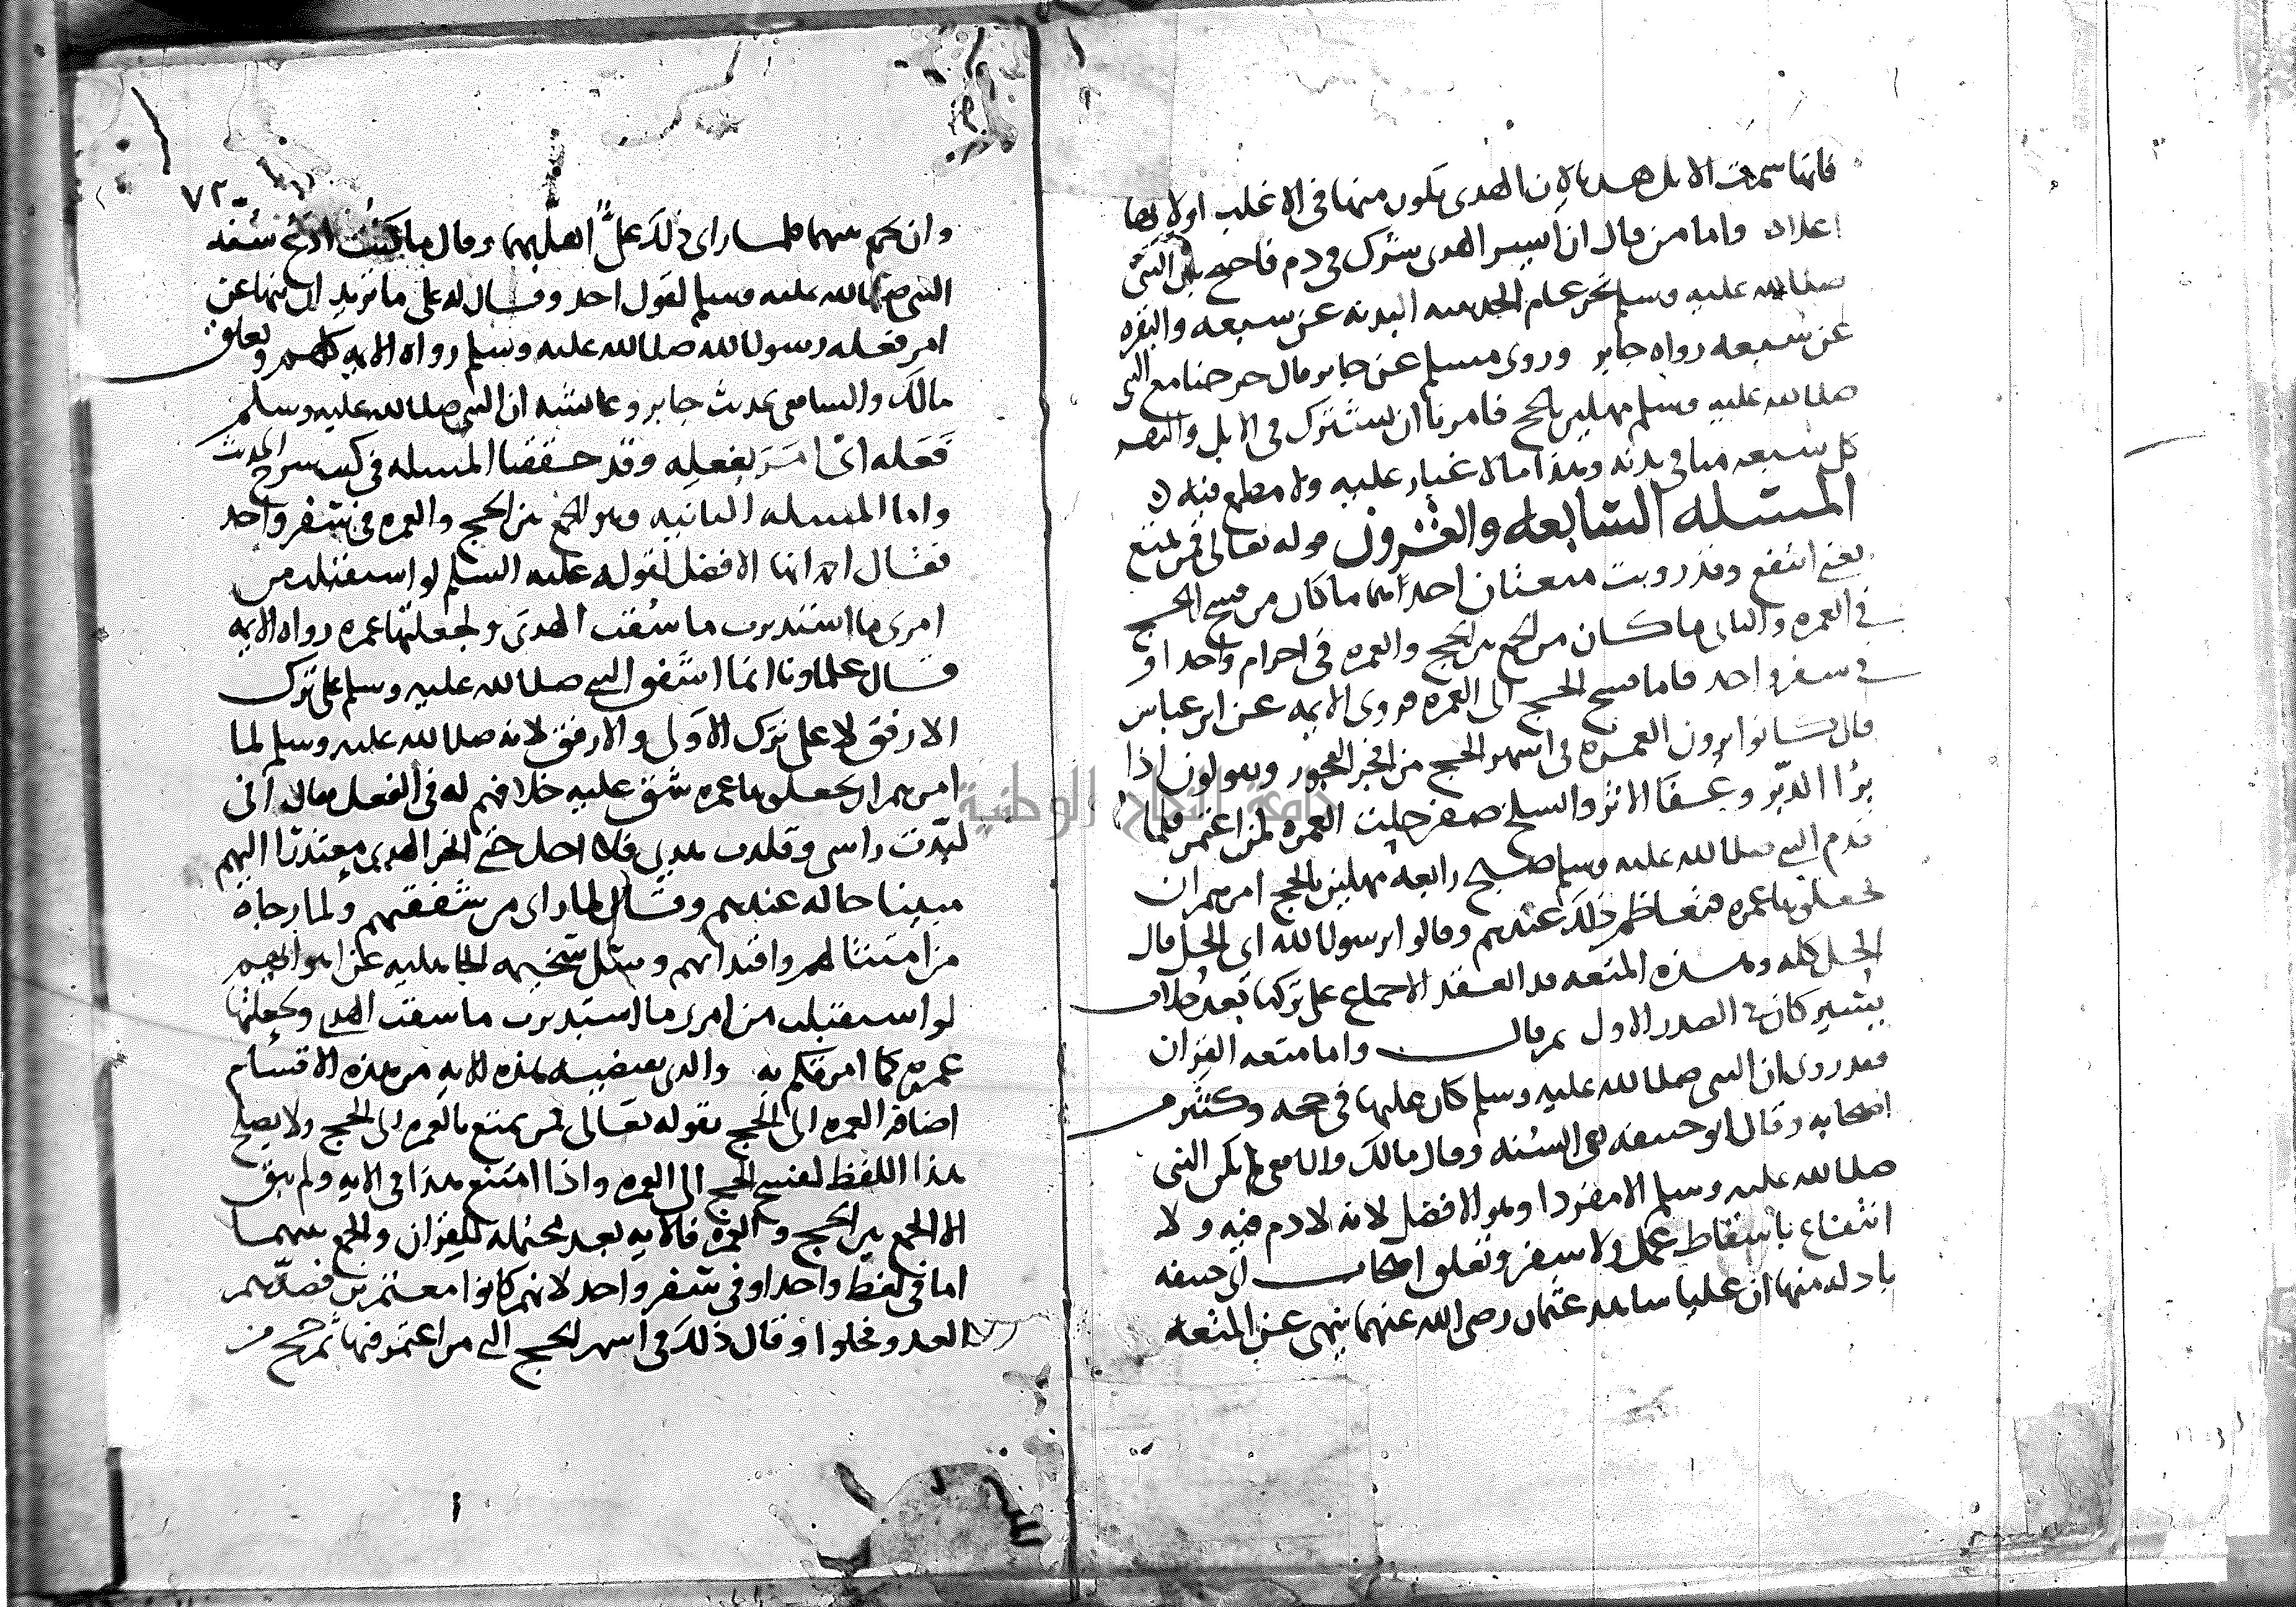 فانما سميت الابل هديا لان الهدى يكون منها فى الاغلب او لانها
اعلاه واما من قال ان ايسر الهدى شرك فى دم فاحتج بان النبى
صلى الله عليه وسلم نحر عام الحديبيه البدنه عن سبعه والبقره
عن سبعه رواه جابر وروى مسلم عن جابر قال خرجنا مع النبى
صلى الله عليه وسلم مهلين بالحج فامرنا ان نشترك فى الابل والبقر
كل سبعه منا فى بدنه وهذا ما لا غبار عليه ولا مطعن فيه
المسئله السابعه والعشرون قوله تعالى فمن تمتع
يعنى انتفع وقد رويت متعتان احداهما ما كان من فسخ الحج
فى العمره والثانى ما كان من الجمع بين الحج والعمره فى احرام واحد او
فى سفر واحد فاما فسخ الحج الى العمره فروى الايمه عن ابن عباس
قال كانوا يرون العمره فى اشهر الحج من افجر الفجور ويقولون اذا
برا الدبر وعفا الاثر وانسلخ صفر حلت العمره لمن اعتمر فلما
قدم النبى صلى الله عليه وسلم صبح رابعه مهلين بالحج امرهم ان
يجعلوها عمره فتعاظم ذلك عندهم وقالوا يرسول الله اى الحل قال
الحل كله وهذه المتعه قد انعقد الاجماع على تركها بعد خلاف
يسير كان فى الصدر الاول ثم زال واما متعه القران
فقد روى ان النبى صلى الله عليه وسلم كان عليها فى حجه وكثير من
اصحابه وقال ابو حنيفه هى السنه وقال مالك والشافعى لم يكن النبى
صلى الله عليه وسلم الا مفردا وهو الافضل لانه لا دم فيه ولا
انتفاع باسقاط عمل ولا سفر وتعلق اصحاب ابى حنيفه
بادله منها ان عليا شاهد عثمان رضى الله عنهما ينهى عن المتعه
٧٢
وان يجمع بينهما فلما راى ذلك على اهل بهما وقال ما كنت ادع سنه
النبى صلى الله عليه وسلم لقول احد وقال له على ما تريد الى تنها عن
امر فعله رسول الله صلى الله عليه وسلم رواه الايمه كلهم وتعلق
مالك والشافعى بحديث جابر وعائشه ان النبى صلى الله عليه وسلم
فعله اى امر بفعله وقد حققنا المسئله فى كتب شرح الحديث
واما المسئله الثانيه وهو الجمع بين الحج والعمره فى سفر واحد
فقال احد انها الافضل لقوله عليه السلم لو استقبلت من
امرى ما استدبرت ما سقت الهدى ولجعلتها عمره رواه الايمه
قال علماونا انما اشفق النبى صلى الله عليه وسلم على ترك
الارفق لا على ترك الاولى والارفق لانه صلى الله عليه وسلم لما
امرهم ان يجعلوها عمره شق عليه خلافهم له فى الفعل فقال انى
لبدت راسى وقلدت هديى فلا احل حتى انحر الهدى معتذرا اليهم
مبينا حاله عندهم وقال لما راى من شفقتهم ولما رجاه
من امتثالهم واقتدائهم وسل سخيمه الجاهليه عن اهوائهم
لو استقبلت من امرى ما استدبرت ما سقت الهدى وجعلتها
عمره كما امرتكم به والذى يقتضيه هذه الايه من هذه الاقسام
اضافه العمره الى الحج بقوله تعالى فمن تمتع بالعمره الى الحج ولا يصلح
هذا اللفظ لفسخ الحج الى العمره واذا امتنع هذا فى الايه ولم يبق
الا الجمع بين الحج والعمره فالايه بعد محتمله للقران والجمع بينهما
اما فى لفظ واحد او فى سفر واحد لانهم كانوا معتمرين فصدهم
العدو فحلوا وقال ذلك فى اشهر الحج الى من اعتمر فيها ثم حج من
جامعة النجاح الوطنية